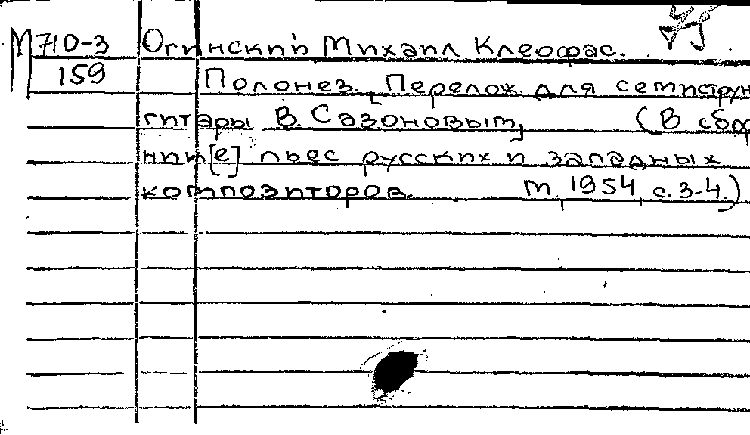 М710-3 Огинский Михаил Клеофас.
159 Полонез. [Перелож. для семиструн
гитары В. Сазоновым, (В сбор
ник[е] пьес русских и западных
композиторов. М., 1954, с. 3-4.)